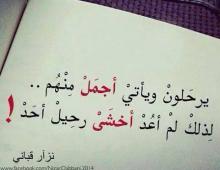 يرحلون ويأتي أجمل منهم ..
لذلك لم أعد أخشى رحيل أحد !
نزار قباني
www.facebook.com/NizarQabbani2014